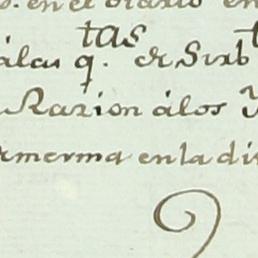 . en el diario en
álas q.tas de Surb
Razion álos
merma en la di